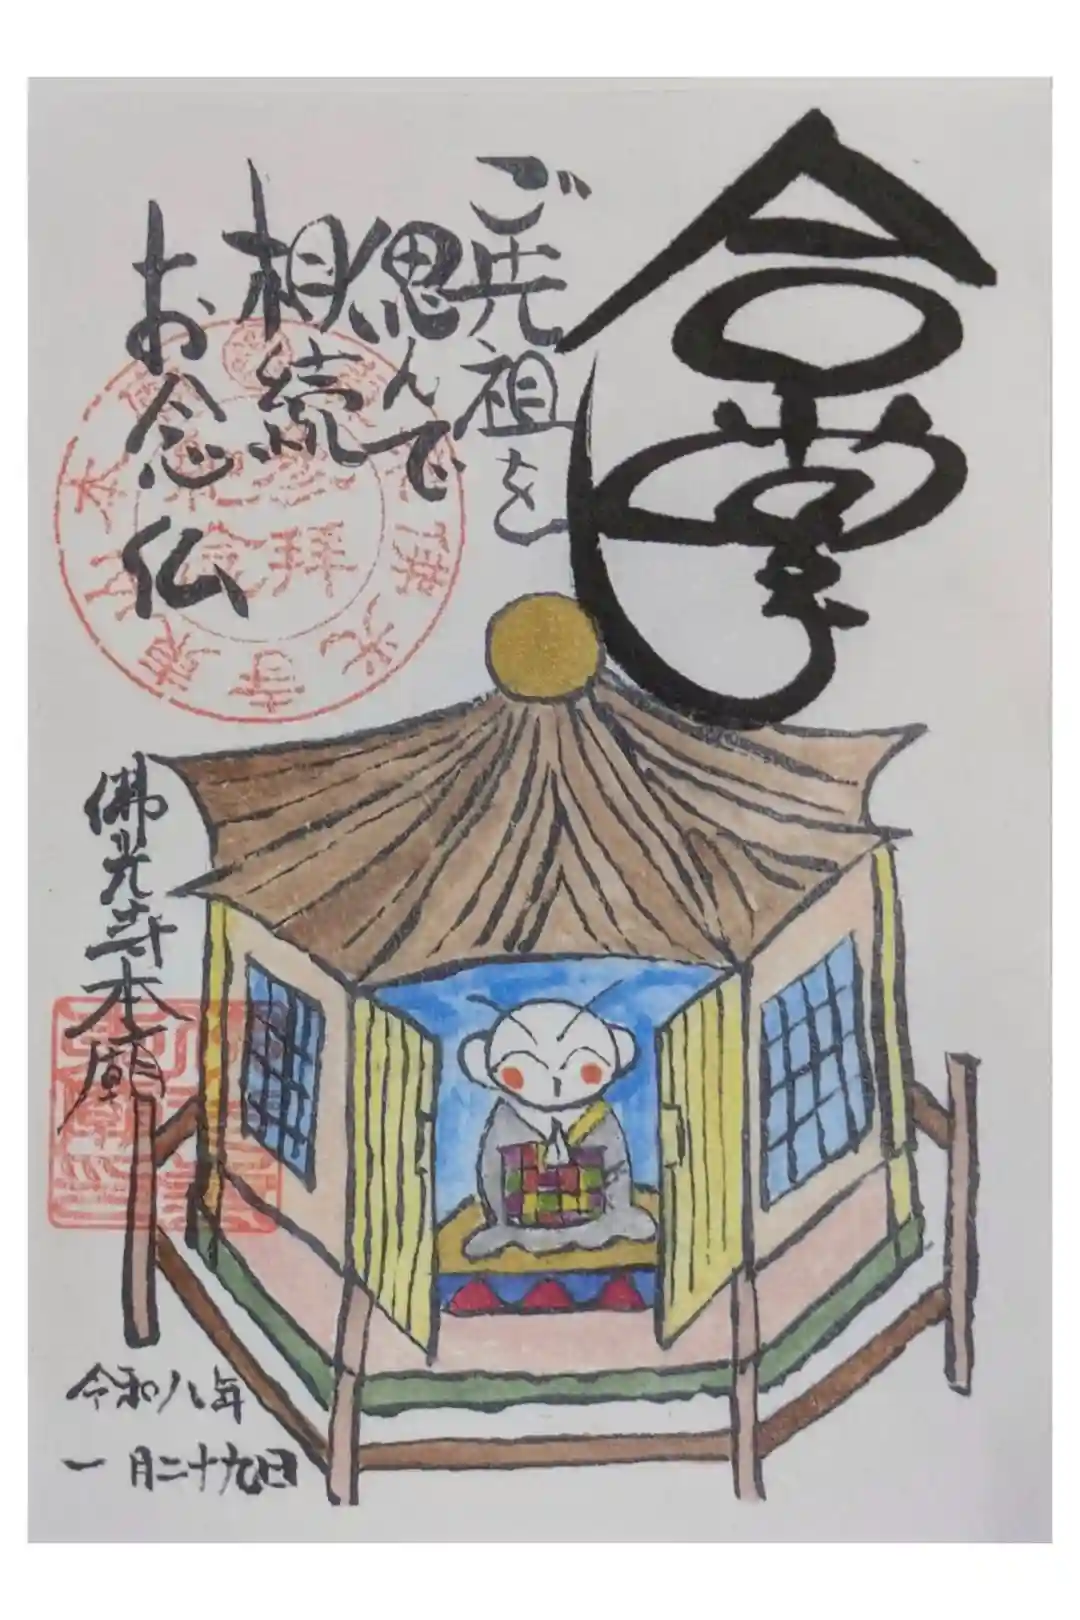 合掌
ご先祖を
偲んで
相続
お念仏
佛光寺東山本
拝
佛光寺本廟
令和八年
一月二十九日